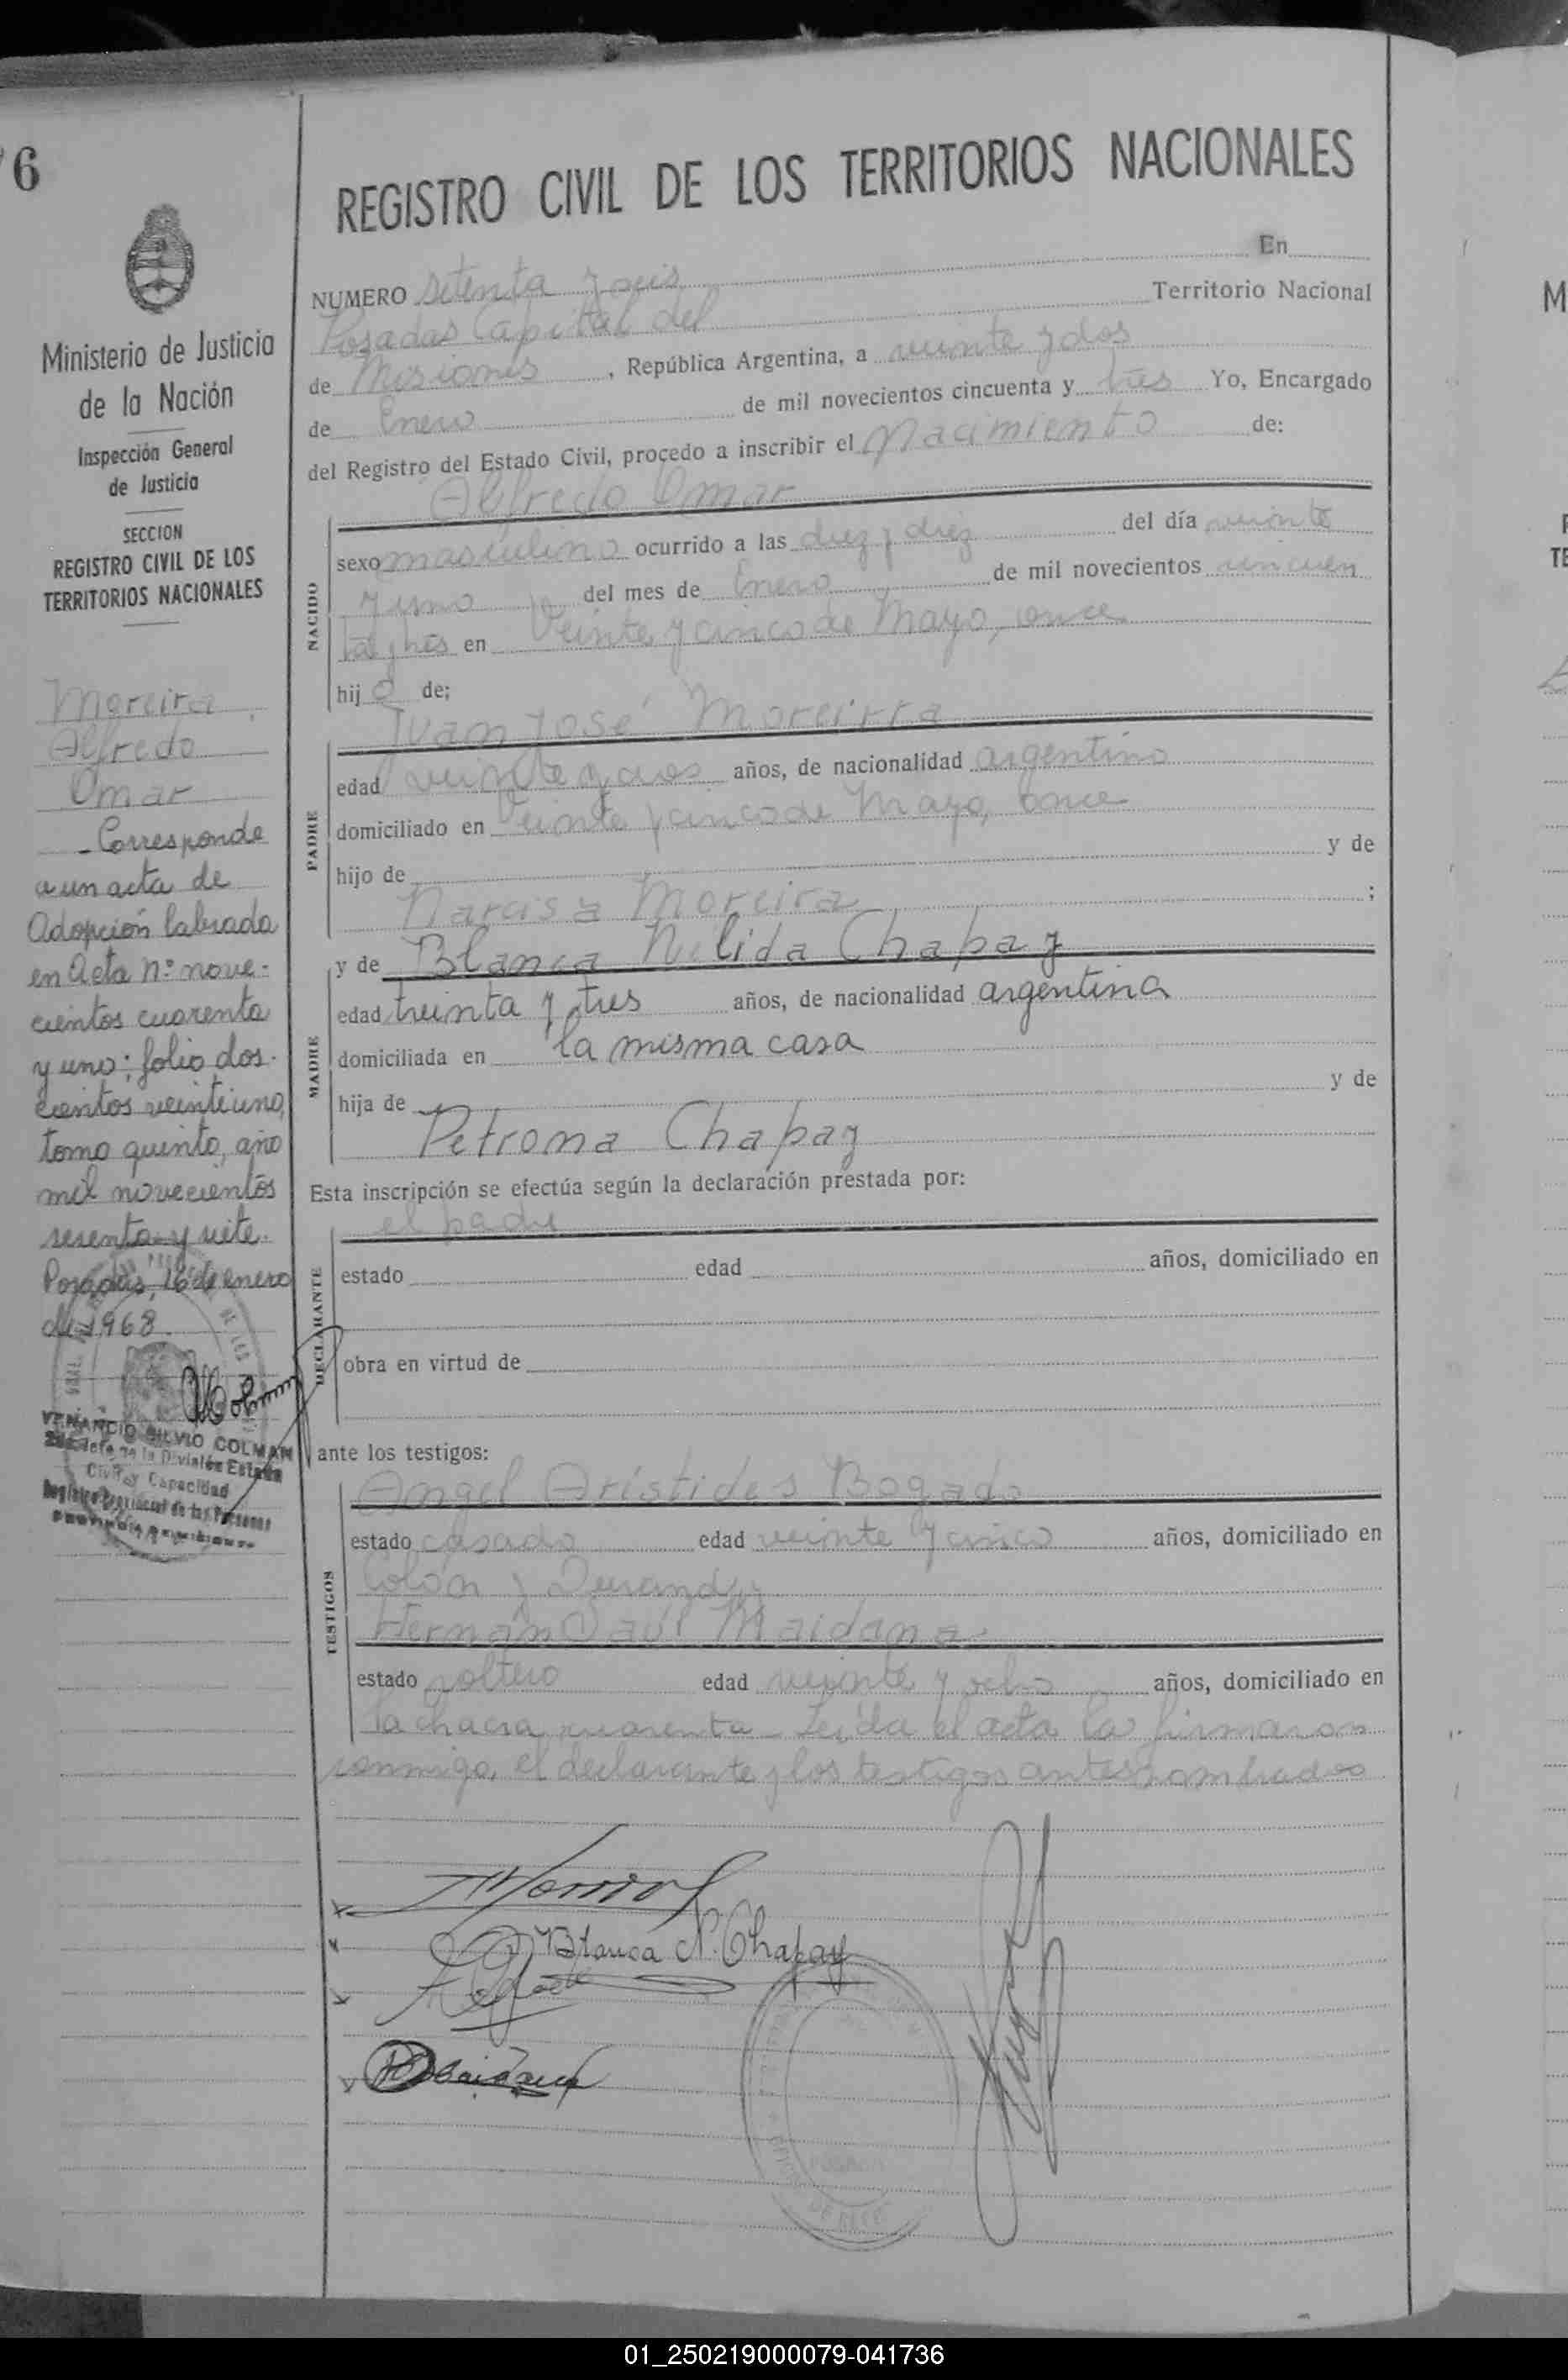 76
Ministerio de Justicia
de la Nación
Inspección General
de Justicia
SECCION
REGISTRO CIVIL DE LOS
TERRITORIOS NACIONALES
Moreira
Alfredo
Omar
- Corresponde
a un acta de
Adopción labrada
en Acta nº nove-
cientos cuarenta
y uno; folio dos-
cientos veintiuno,
tomo quinto, año
mil novecientos
sesenta y siete.
Posadas, 16 de enero
de 1968.
VENANCIO SILVIO COLMAN
Jefe de la División Estado
Civil y Capacidad
Registro Provincial de las Personas
REGISTRO CIVIL DE LOS TERRITORIOS NACIONALES
NUMERO setenta y seis En
Posadas Capital del Territorio Nacional
de Misiones, República Argentina, a veinte y dos
de Enero de mil novecientos cincuenta y tres Yo, Encargado
del Registro del Estado Civil, procedo a inscribir el Nacimiento de:
NACIDO
Alfredo Omar
sexo masculino ocurrido a las diez y diez del día veinte
y uno del mes de Enero de mil novecientos cincuen
ta y tres en Veinte y cinco de Mayo, once
hijo de;
PADRE
Juan José Moreirra
edad veinte y dos años, de nacionalidad argentino
domiciliado en Veinte y cinco de Mayo, once
hijo de y de
Narcisa Moreira ;
MADRE
y de Blanca Nelida Chapay
edad treinta y tres años, de nacionalidad argentina
domiciliada en la misma casa
hija de y de
Petrona Chapay
Esta inscripción se efectúa según la declaración prestada por:
DECLARANTE
el padre
estado edad años, domiciliado en
obra en virtud de
ante los testigos:
TESTIGOS
Angel Aristides Bogado
estado casado edad veinte y cinco años, domiciliado en
Colón y
Hernán Maidana
estado soltero edad veinte y ocho años, domiciliado en
la chacra cuarenta - Leída el acta la firmaron
conmigo, el declarante y los testigos antes nombrados
Blanca N. Chapay
01_250219000079-041736